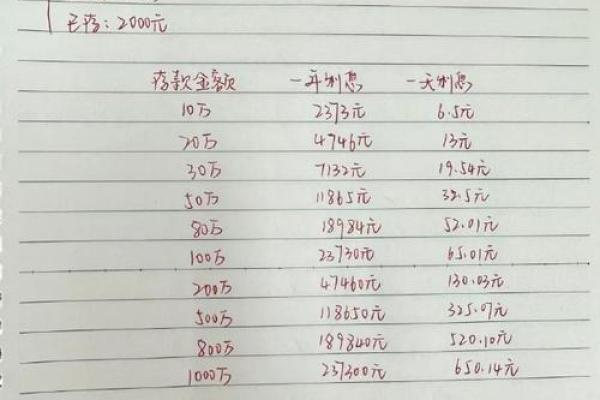 已存：2000元
存款金额 一年利息 一天利息
10万 2373元 6.5元
20万 4746元 13元
30万 7132元 19.54元
50万 11865元 32.5元
80万 18984元 52.01元
100万 23730元 65.01元
200万 47460元 130.03元
500万 118650元 325.07元
800万 189840元 520.10元
1000万 237300元 650.14元